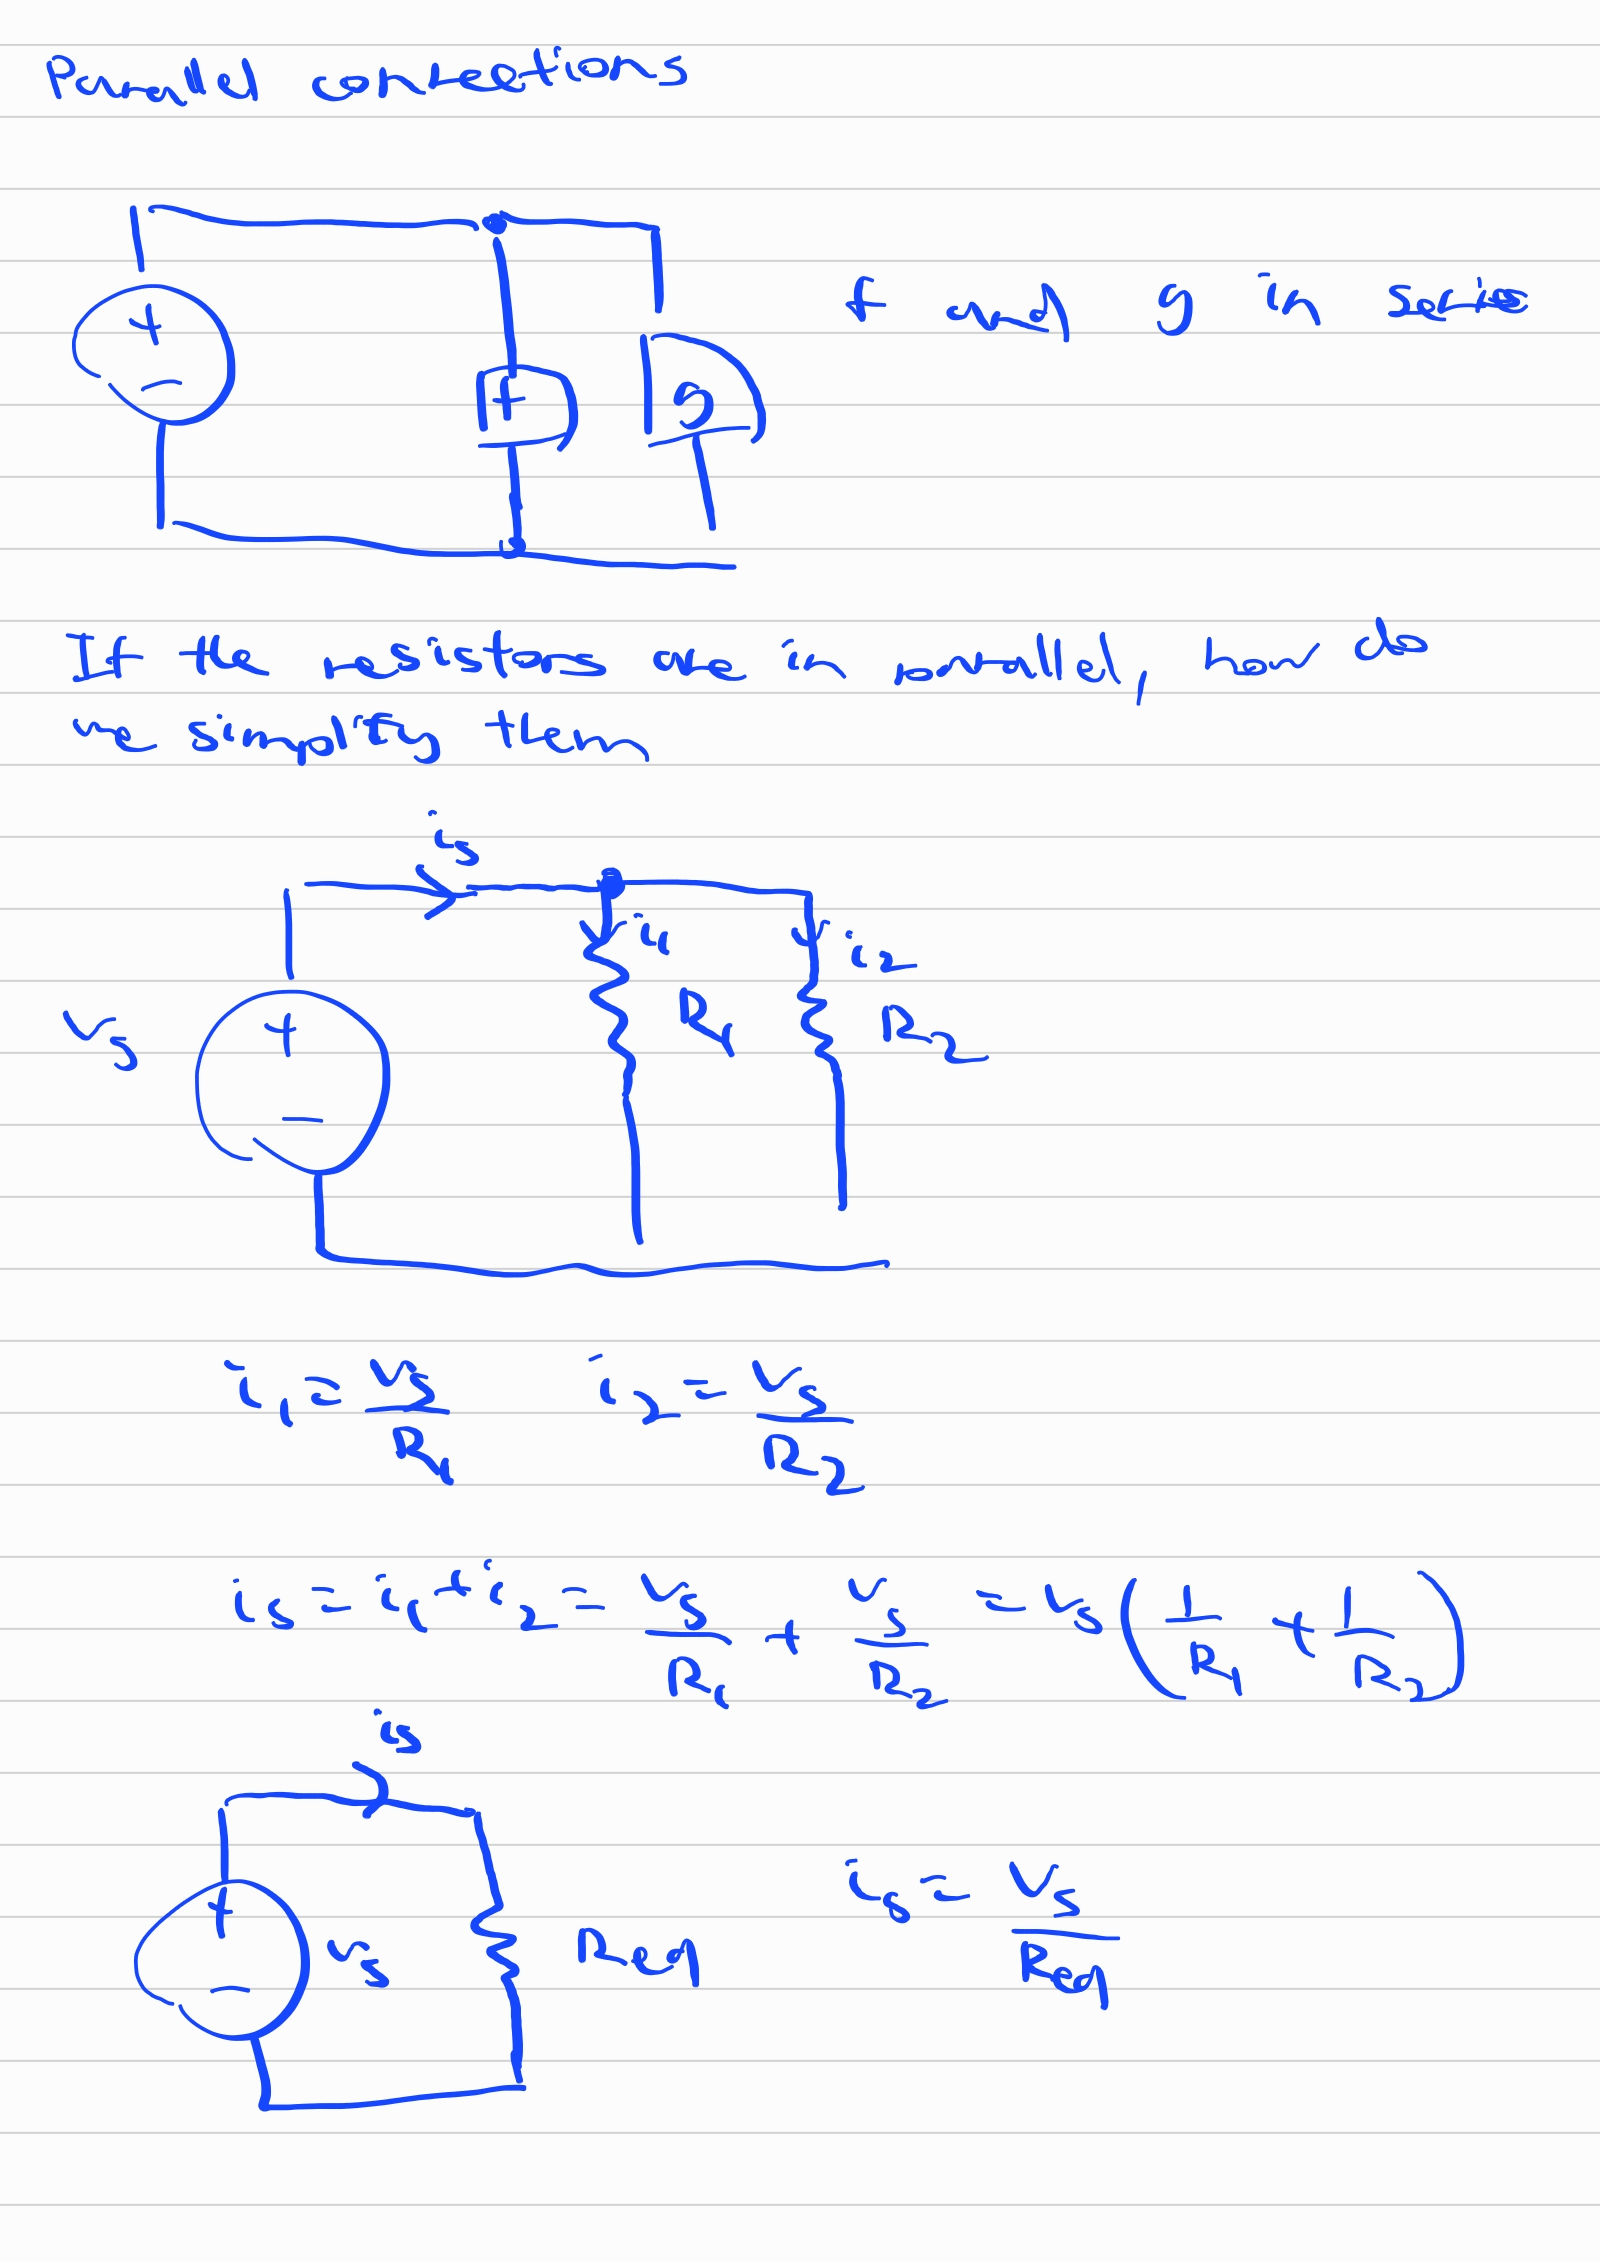 Parallel connections
+
−
f
g
f and g in series
If the resistors are in parallel, how do
we simplify them
is
i1
i2
R1
R2
vs
+
−
i1 = vs/R1 i2 = vs/R2
is = i1 + i2 = vs/R1 + vs/R2 = vs(1/R1 + 1/R2)
is
+
−
vs
Req
is = vs/Req